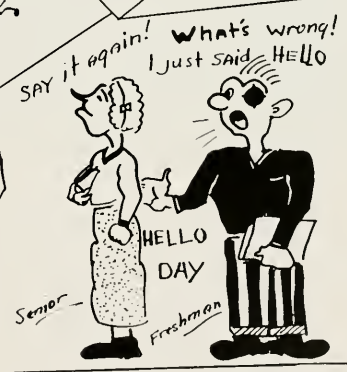 SAY it again!
What's wrong!
I just said HELLO
HELLO
DAY
Senior
Freshman